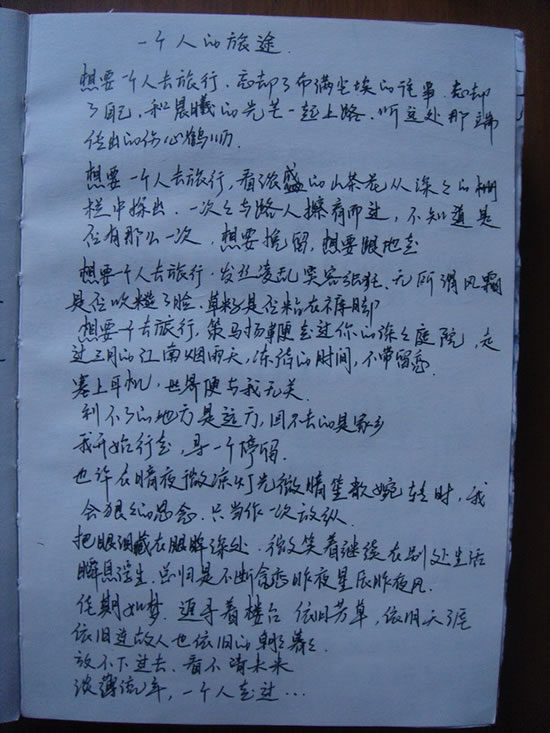 一个人的旅途.
想要一个人去旅行.忘却了布满尘埃的往事.忘却
了自己,和晨曦的光芒一起上路.听远处那端
传出的伤心
想要一个人去旅行,看浓盛的山茶花从深々的栅
栏中探出.一次々与路人擦肩而过,不知道是
否有那么一次,想要挽留,想要跟他走
想要一个人去旅行.发丝凌乱笑容张狂.无所谓风霜
是否吹糙了脸.草籽是否粘在裤脚
想要一个去旅行.策马扬鞭走过你的深々庭院,走
过三月的江南烟雨天,冻结的时间,不带留恋
塞上耳机,世界便与我无关.
到不了的地方是远方,回不去的是家乡
我开始行走,寻一个停留.
也许在暗夜微凉灯光微晴笙歌婉转时,我
会狠々的思念.只当作一次放纵.
把眼泪藏在眼眸深处.微笑着继续在别处生活
瞬息浮生.总归是不断贪恋昨夜星辰昨夜风.
佳期如梦.追寻着楼台 依旧芳草,依旧天涯
依旧连故人也依旧的朝朝暮々
放不下过去.看不清未来
淡薄流年,一个人走过…